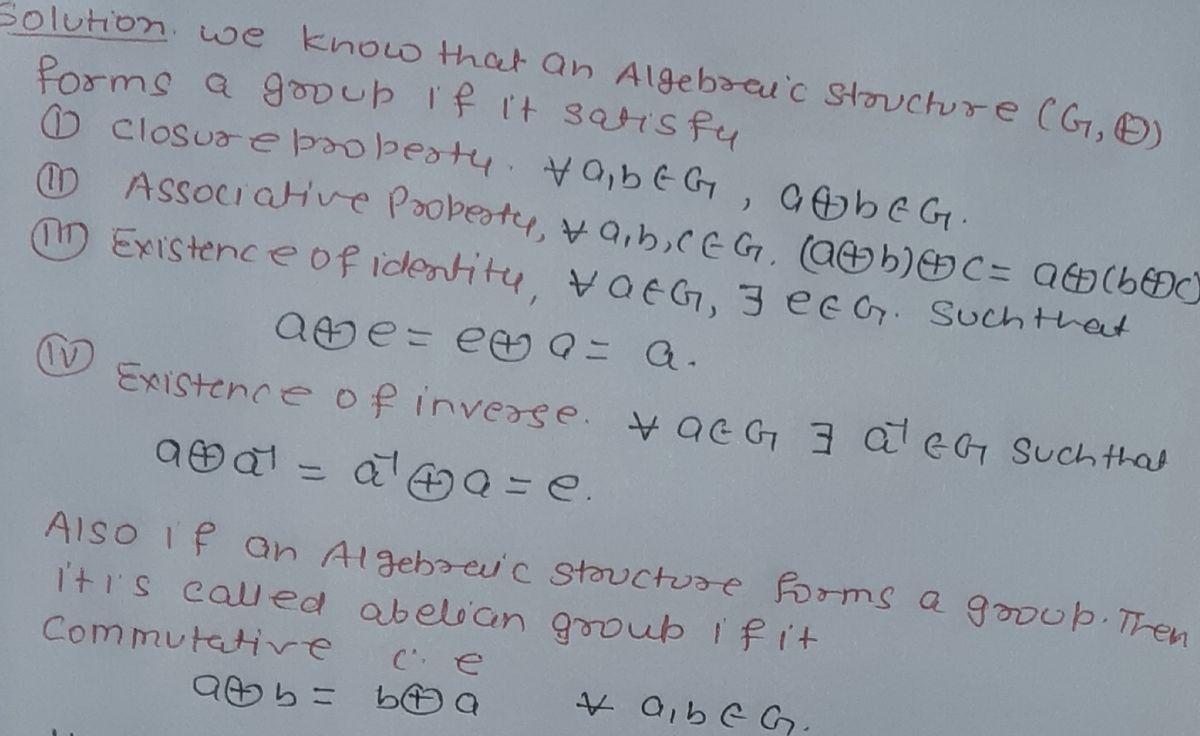 Solution. we know that an Algebraic structure (G, ⊕)
forms a group if it satisfy
(I) closure property. ∀ a,b ∈ G, a⊕b ∈ G.
(II) Associative Property, ∀ a,b,c ∈ G. (a⊕b)⊕c = a⊕(b⊕c)
(III) Existence of identity, ∀ a ∈ G, ∃ e ∈ G. Such that
a⊕e = e⊕a = a.
(IV) Existence of inverse. ∀ a ∈ G ∃ a⁻¹ ∈ G Such that
a⊕a⁻¹ = a⁻¹⊕a = e.
Also if an Algebraic structure forms a group. Then
it is called abelian group if it
Commutative i.e
a⊕b = b⊕a ∀ a,b ∈ G.